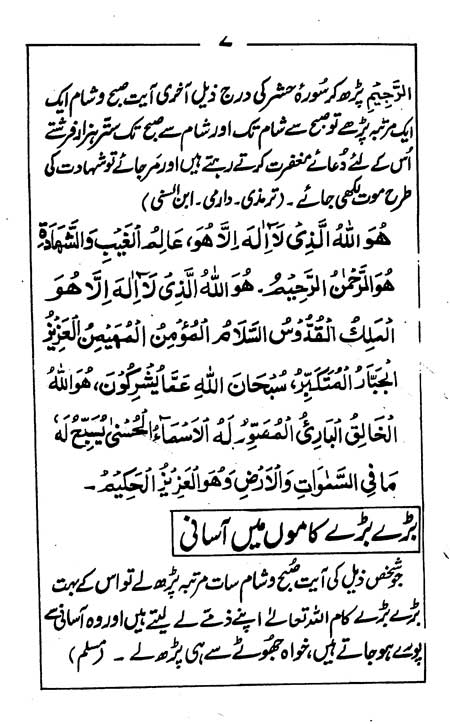 ۷
الرَّجِیْمِ پڑھ کر سُورۂ حشر کی درجِ ذیل آخری آیت صبح و شام ایک
ایک مرتبہ پڑھے تو صبح سے شام تک اور شام سے صبح تک ستّر ہزار فرشتے
اُس کے لئے دُعائے مغفرت کرتے رہتے ہیں اور مَر جائے تو شہادت کی
طرح موت لکھی جائے۔ (ترمذی۔ دارمی۔ ابن السنی)
هُوَ اللهُ الَّذِىْ لَآ اِلٰهَ اِلَّا هُوَ، عَالِمُ الْغَيْبِ وَالشَّهَادَةِ
هُوَ الرَّحْمٰنُ الرَّحِيْمُ۔ هُوَ اللهُ الَّذِىْ لَآ اِلٰهَ اِلَّا هُوَ
اَلْمَلِكُ الْقُدُّوْسُ السَّلَامُ الْمُؤْمِنُ الْمُهَيْمِنُ الْعَزِيْزُ
الْجَبَّارُ الْمُتَكَبِّرُ، سُبْحَانَ اللهِ عَمَّا يُشْرِكُوْنَ، هُوَ اللهُ
الْخَالِقُ الْبَارِئُ الْمُصَوِّرُ لَهُ الْاَسْمَآءُ الْحُسْنٰى يُسَبِّحُ لَهٗ
مَا فِى السَّمٰوَاتِ وَالْاَرْضِ وَهُوَ الْعَزِيْزُ الْحَكِيْمُ۔
بڑے بڑے کاموں میں آسانی
جو شخص ذیل کی آیت صُبح و شام سات مرتبہ پڑھ لے تو اس کے بہت
بڑے بڑے کام اللہ تعالےٰ اپنے ذمّے لے لیتے ہیں اور وہ آسانی سے
پورے ہو جاتے ہیں، خواہ جھُوٹے سے ہی پڑھ لے۔ (مسلم)